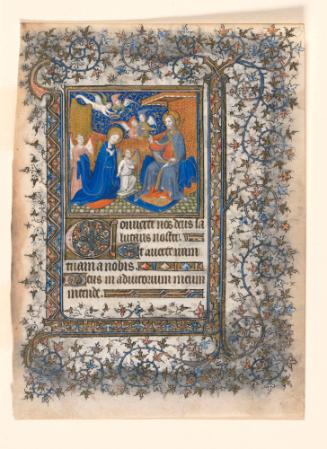 Conuerte nos deus sa
lutaris noster.
Et auerte iram
tuam a nobis
Deus in adiutorium meum
intende.